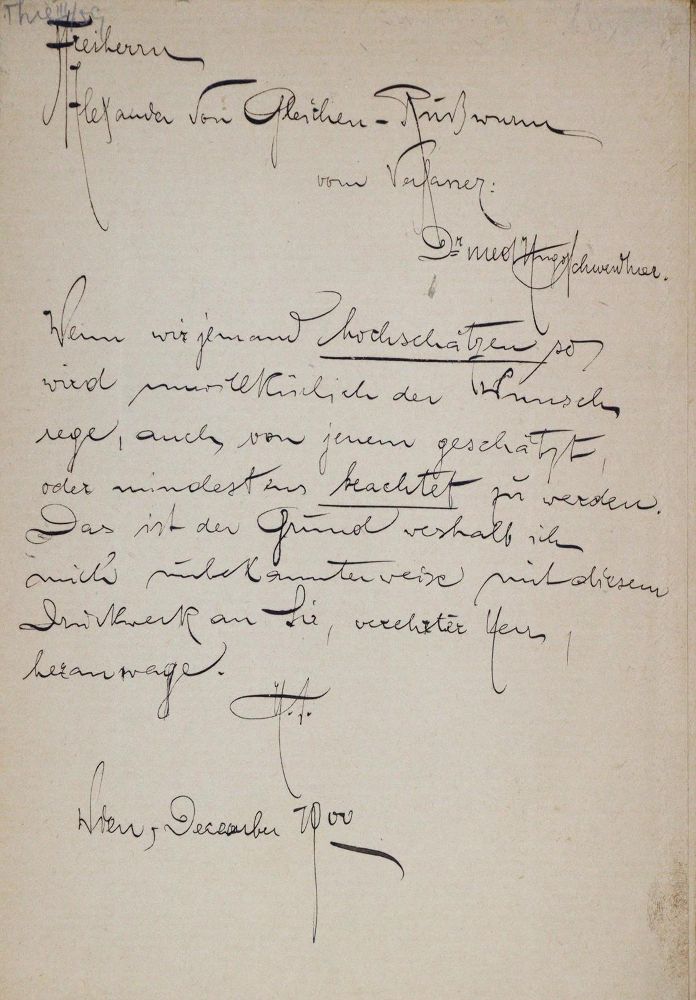 Freiherrn
Alexander von Gleichen-Rußwurm
vom Verfasser:
Dr med Hugo
Wenn wir jemand hochschätzen so
wird unwillkürlich der Wunsch
rege, auch von jenem geschätzt,
oder mindestens beachtet zu werden.
Das ist der Grund weshalb ich
mich unbekannterweise mit diesem
Druckwerk an Sie, verehrter Herr,
heranwage.
H. S.
Wien, December 1900